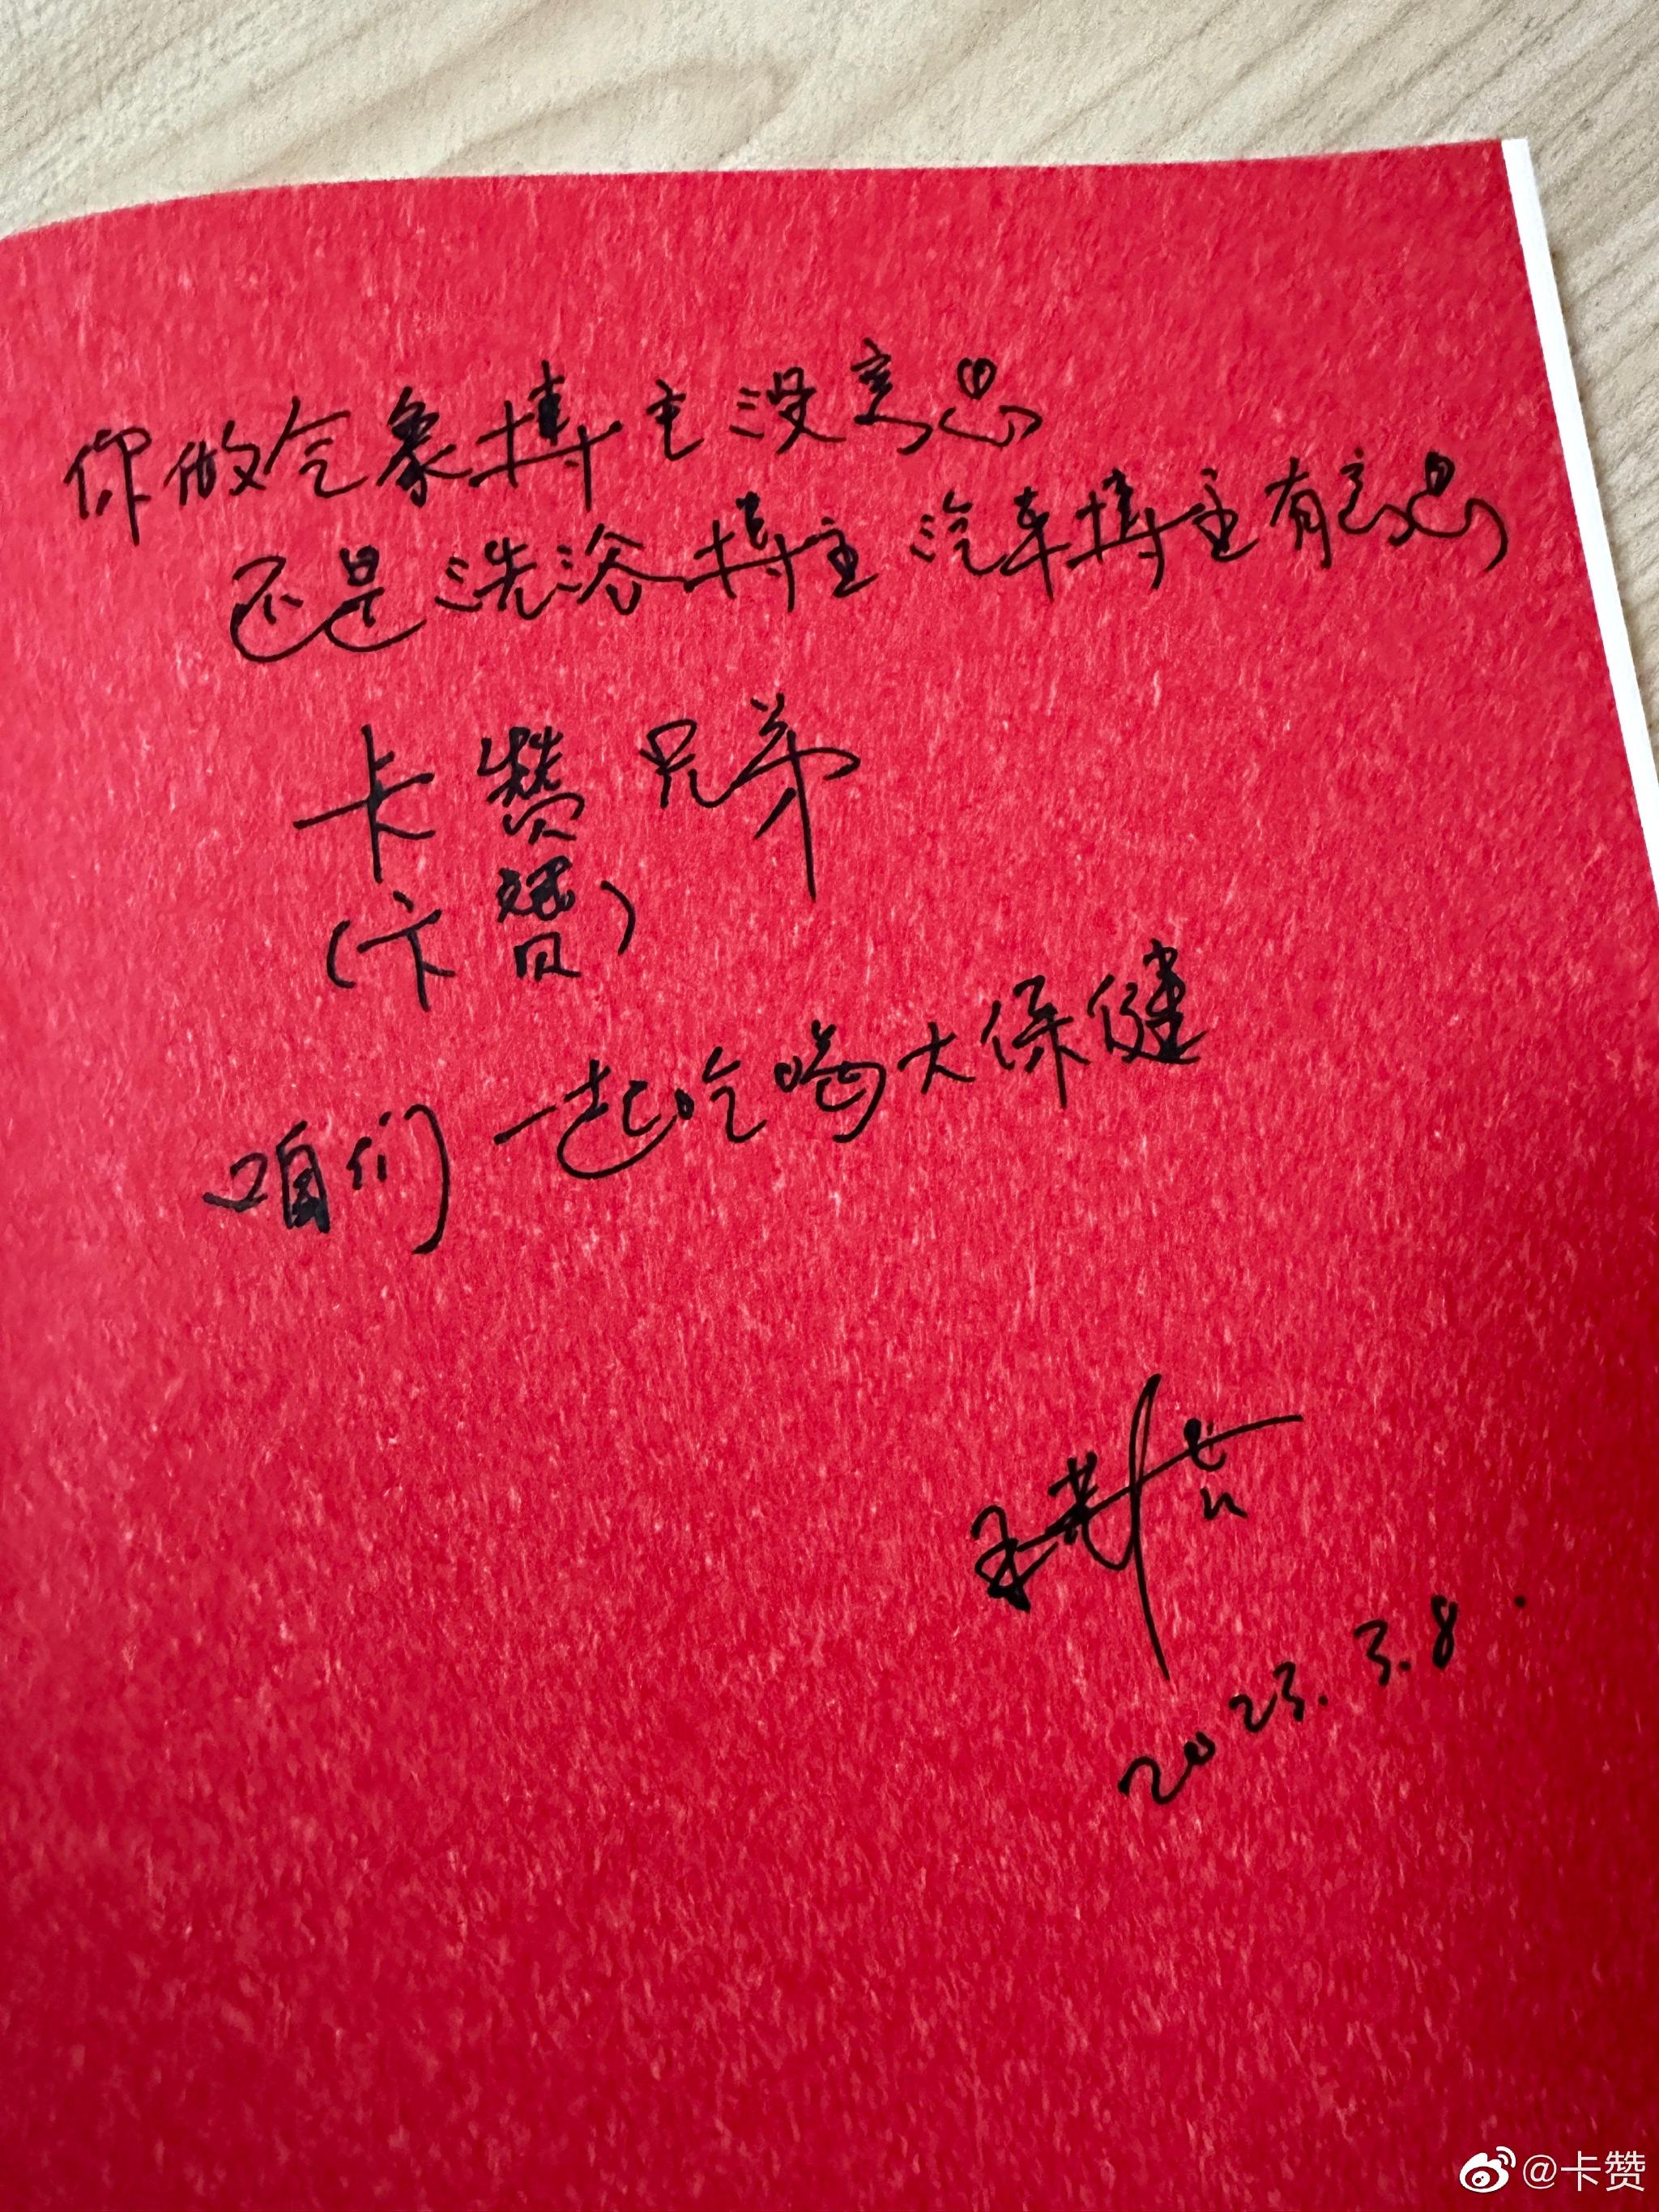 你做气象博主没意思
还是洗浴博主 汽车博主有意思
卡赞兄弟
(卞赟)
咱们一起吃喝大保健
2023.3.8.
@卡赞